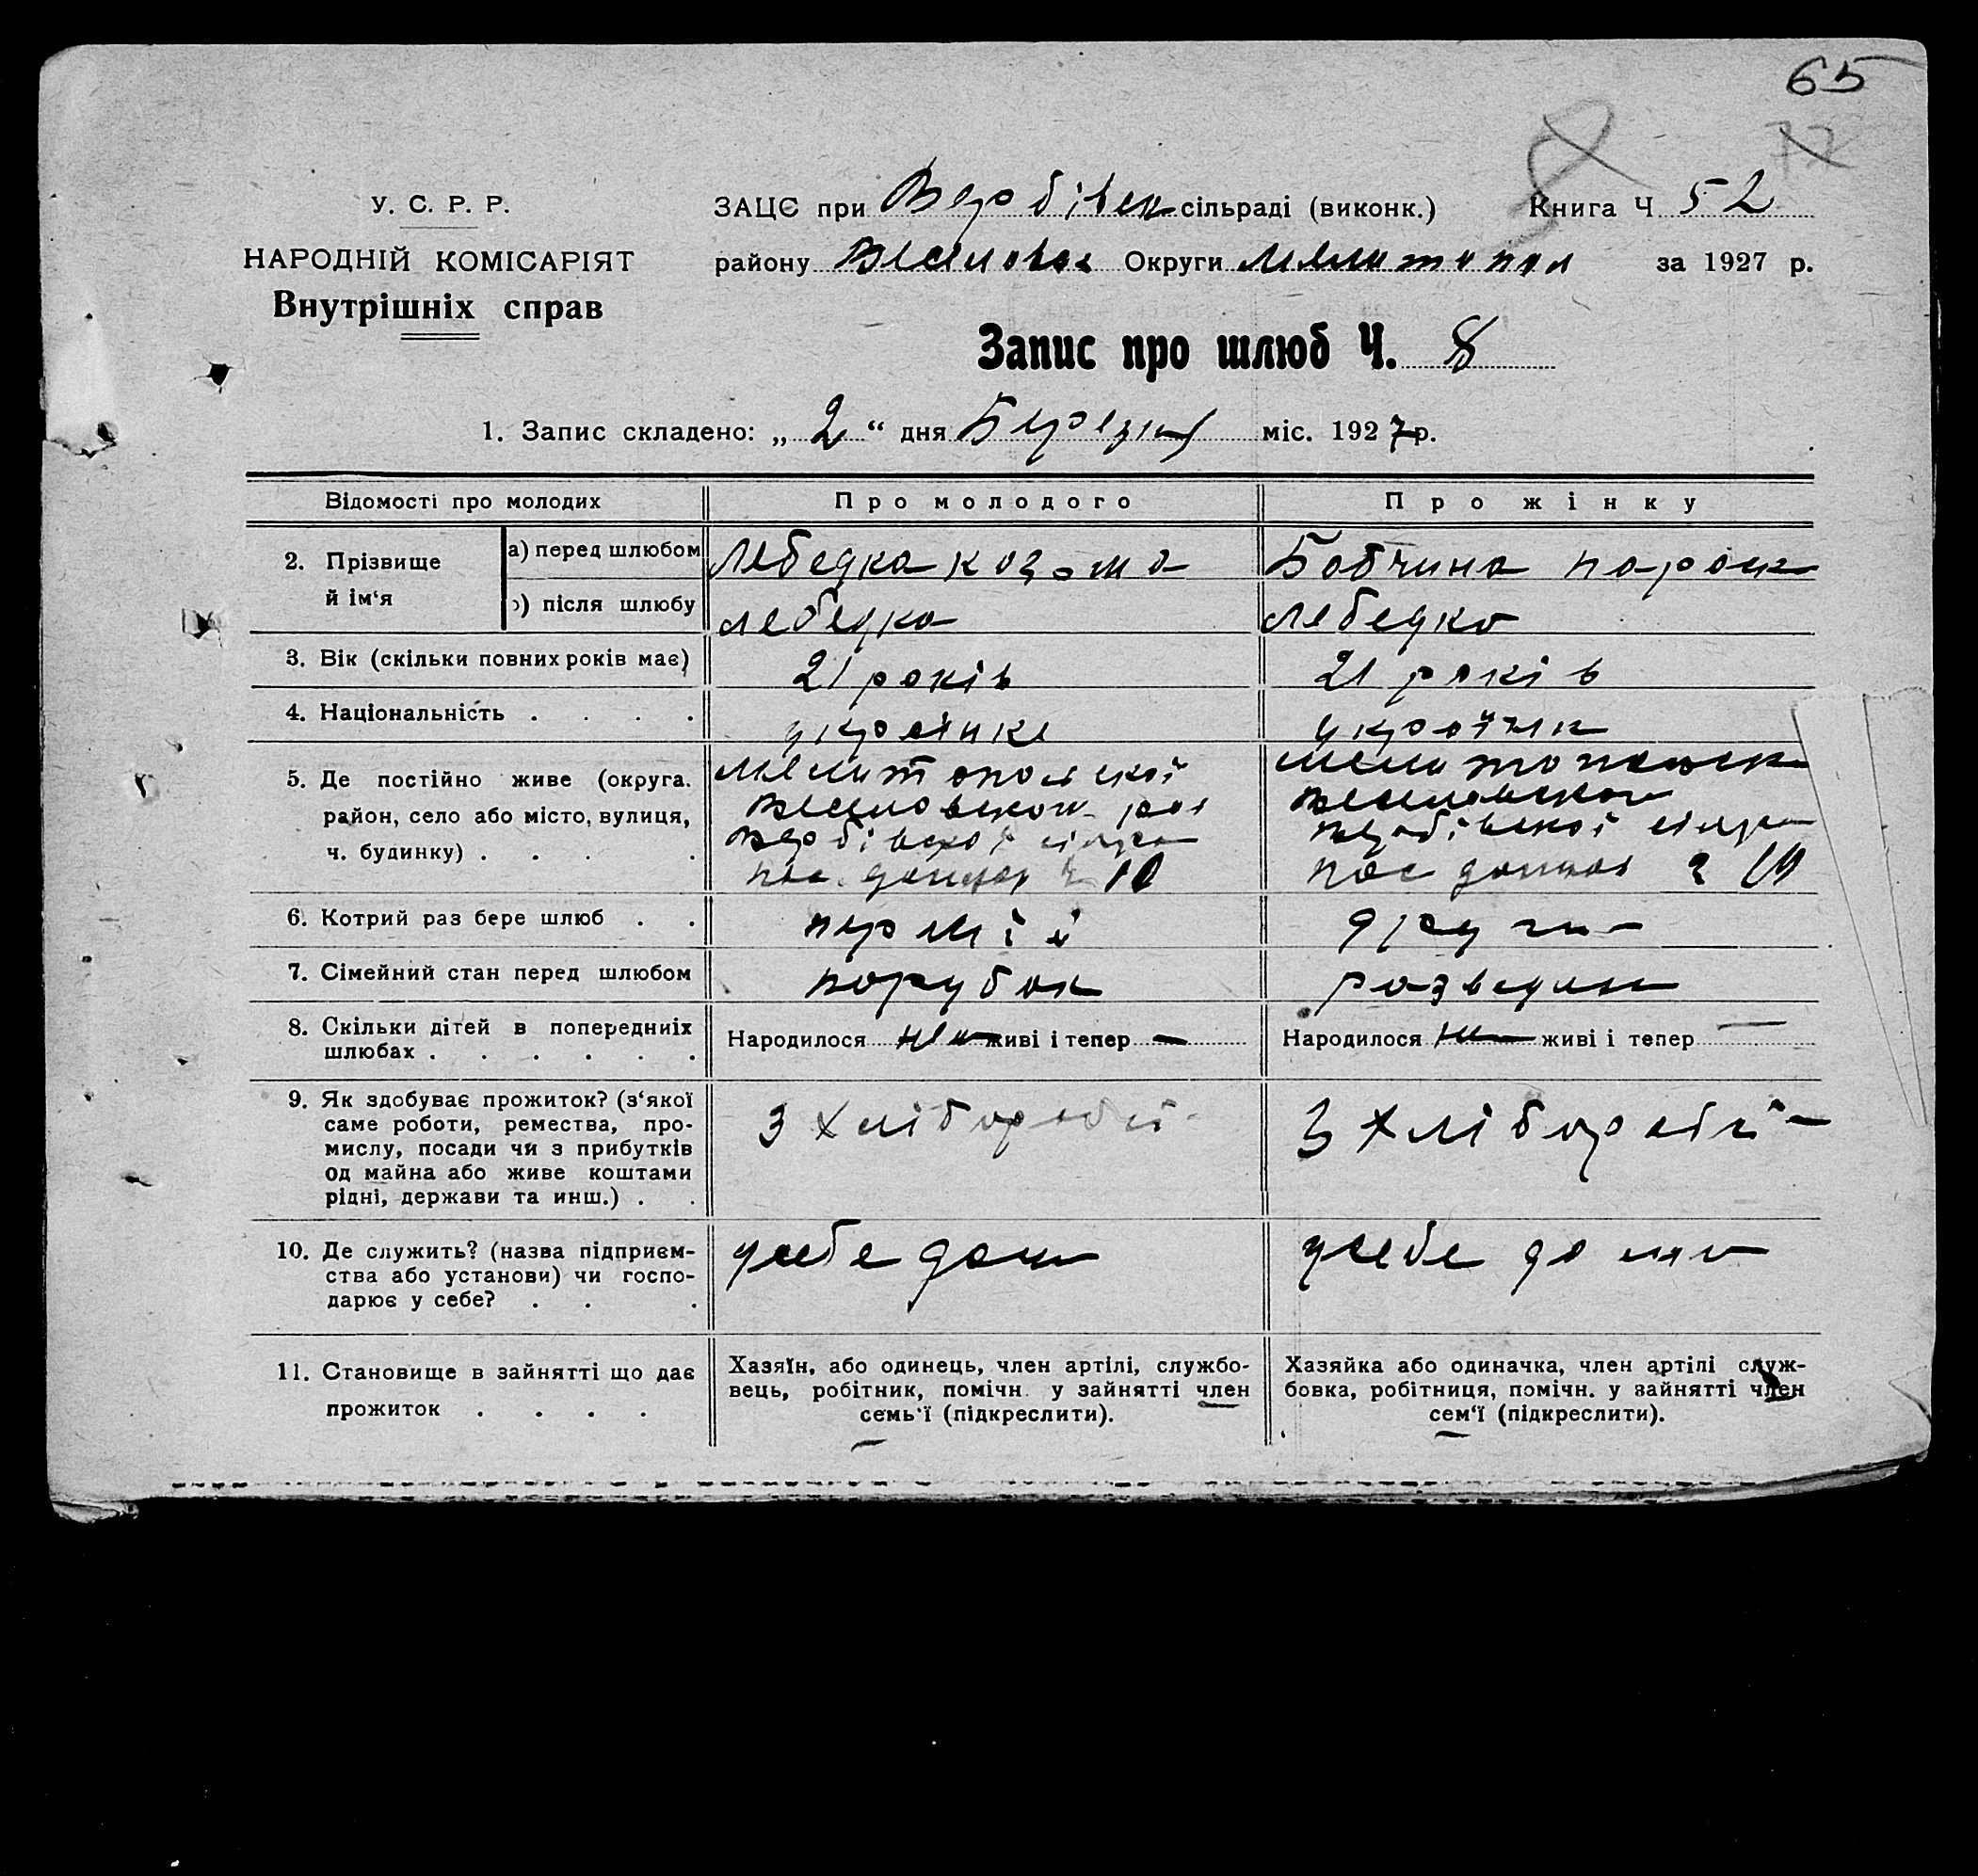 65
72
У. С. Р. Р.
НАРОДНІЙ КОМІСАРІЯТ
Внутрішніх справ
ЗАЦЄ при Вербівск сільраді (виконк.) Книга Ч 52
району Веселовск Округи Мелитопол за 1927 р.
Запис про шлюб Ч. 8
1. Запис складено: „ 2 “ дня Березня міс. 1927 р.
Відомості про молодих Про молодого Про жінку
2. Прізвище й ім‘я
а) перед шлюбом Лебедка козма Бобчина параск
в) після шлюбу лебедка лебедка
3. Вік (скільки повних років має) 21 років 21 років
4. Національність . . . . українка українк
5. Де постійно живе (округа. район, село або місто, вулиця, ч. будинку) . . .
Мелитопольскої
Веселовского рая
Вербівскої сілра
пос. ч 10
Мелитопольск
Веселовского
Вербівскої сілра
пос ч 10
6. Котрий раз бере шлюб . . перший други
7. Сімейний стан перед шлюбом парубок розведена
8. Скільки дітей в попередніх шлюбах . . . . . .
Народилося нема живі і тепер — Народилося живі і тепер —
9. Як здобуває прожиток? (з‘якої
саме роботи, ремества, про-
мислу, посади чи з прибутків
од майна або живе коштами
рідні, держави та инш.) . .
З хліборобії З хліборобії
10. Де служить? (назва підприєм-
ства або установи) чи госпо-
дарює у себе? . . .
у себе дома у себе дома
11. Становище в зайнятті що дає
прожиток . . . .
Хазяїн, або одинець, член артілі, службо-
вець, робітник, помічн. у зайнятті член
семь‘ї (підкреслити).
Хазяйка або одиначка, член артілі служ-
бовка, робітниця, помічн. у зайнятті член
сем‘ї (підкреслити).